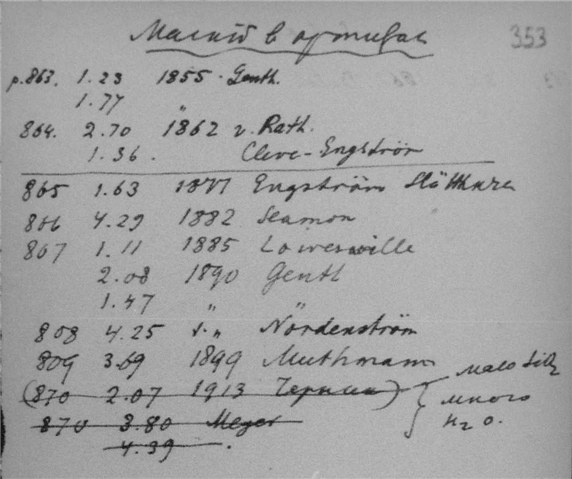 353
p.863. 1.23 1855. Genth.
1.77 "
864. 2.70 1862 v. Rath.
1.36. Cleve-Engström
865 1.63 1877 Engström
866 4.29 1882 Seamon
867 1.11 1885
2.08 1890 Genth
1.47 "
808 4.25 " Nordenström
809 3.69 1899 Muthmann
(870 2.07 1913 Черник) мало SiO₂
870 3.80 Meyer много
4.39 H₂O.